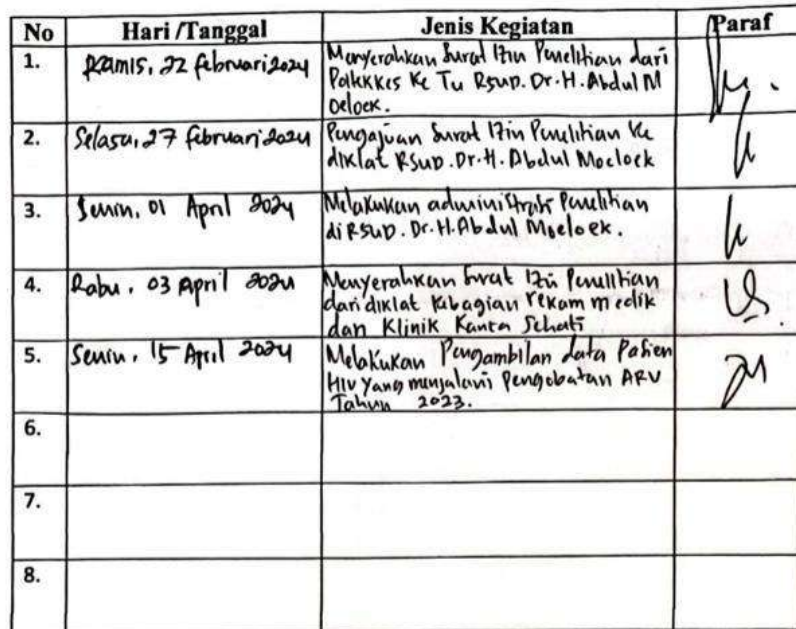 No Hari /Tanggal Jenis Kegiatan Paraf
1. Kamis, 22 februari 2024
Menyerahkan Surat Izin Penelitian dari
Poltekkes Ke Tu Rsup. Dr. H. Abdul M
oeloek.
2. Selasa, 27 februari 2024
Pengajuan Surat Izin Penelitian Ke
diklat RSup. Dr. H. Abdul Moeloek
3. Senin, 01 April 2024
Melakukan administrasi Penelitian
di RSUP. Dr. H. Abdul Moeloek.
4. Rabu, 03 April 2024
Menyerahkan Surat Izin Penelitian
dari diklat Kebagian rekam medik
dan Klinik Kanta Sehati
5. Senin, 15 April 2024
Melakukan Pengambilan data Pasien
HIV Yang menjalani Pengobatan ARV
Tahun 2023.
6.
7.
8.